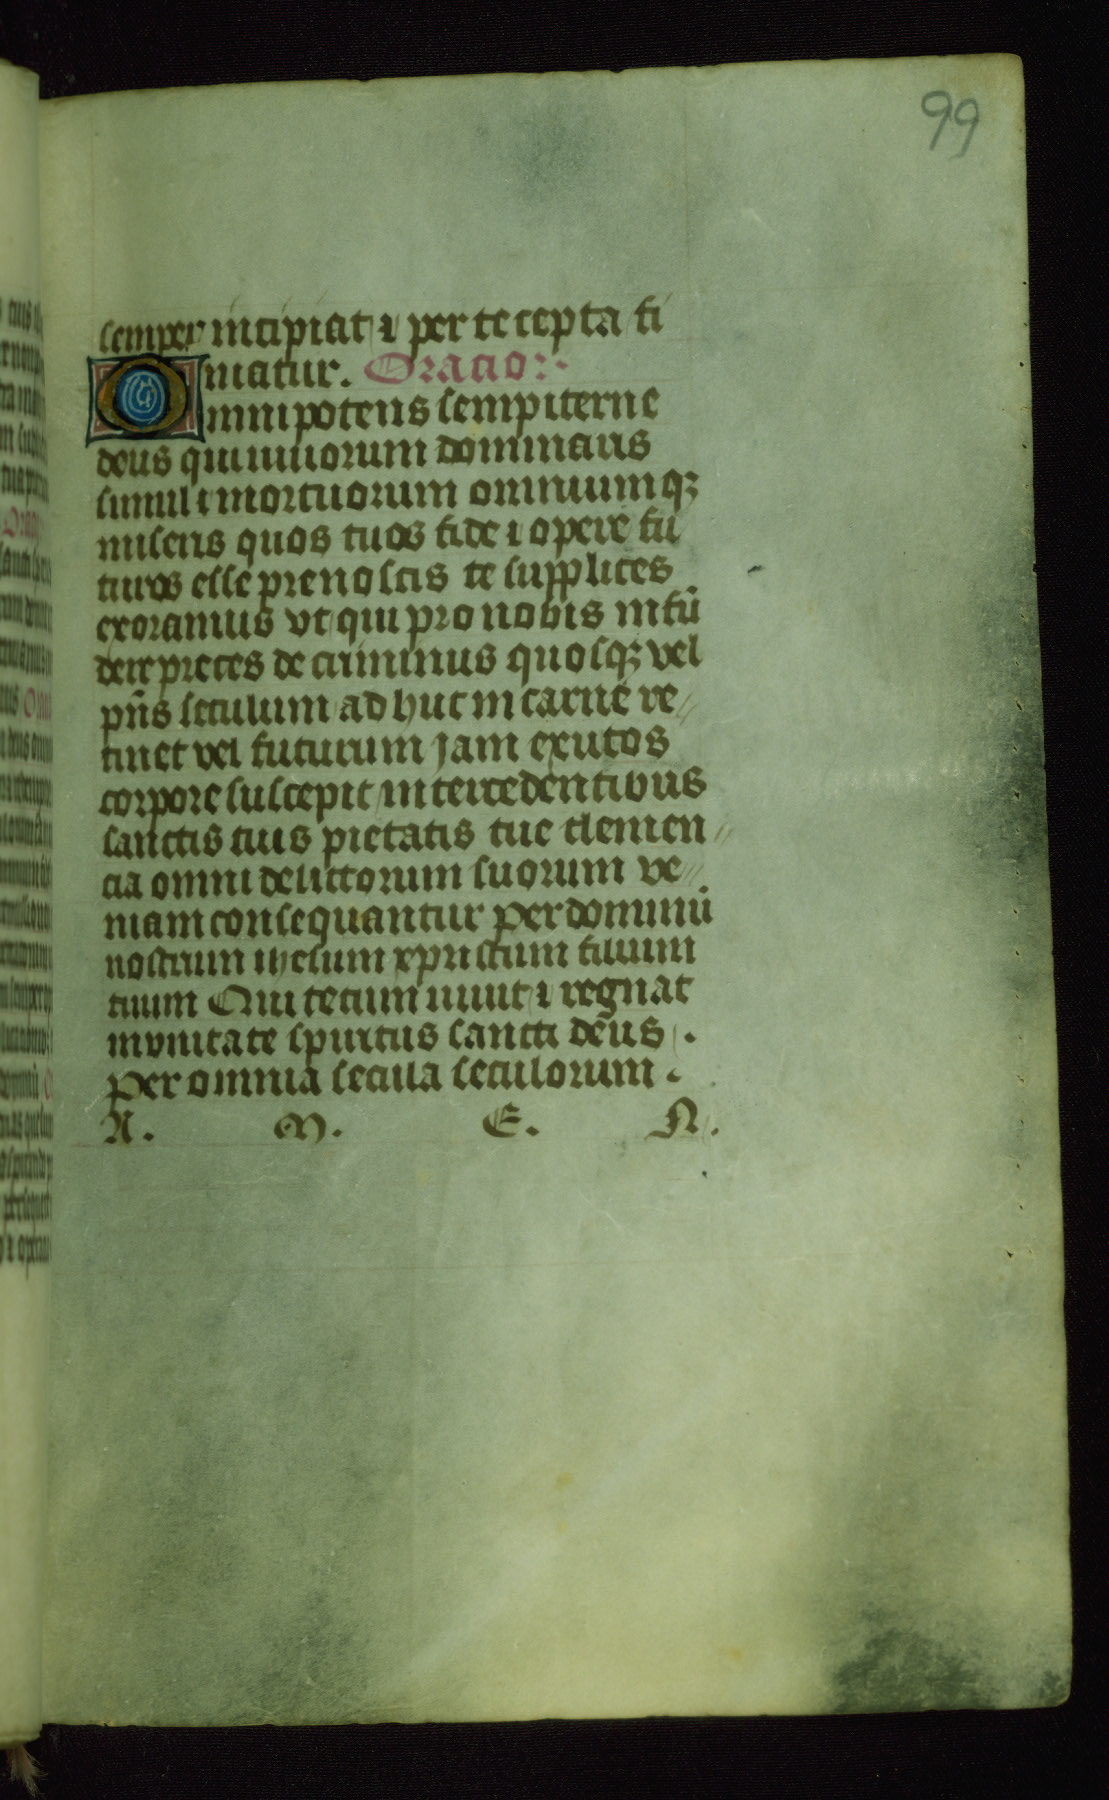 99
semper incipiat ⁊ per te cepta fi
niatur. Oracio:·
Omnipotens sempiterne
deus qui uiuorum dominaris
simul ⁊ mortuorum omniumqꝫ
misereris quos tuos fide ⁊ opere fu
turos esse prenoscis te supplices
exoramus vt qui pro nobis infū
dere preces decriminus quosqꝫ vel
pn̄s seculum ad huc in carne re
tinet vel futurum jam exutos
corpore suscepit intercedentibus
sanctis tuis pietatis tue clemen
cia omni delictorum suorum ve
niam consequantur Per dominū
nostrum ihesum xpristum filium
tuum Qui tecum uiuit ⁊ regnat
in vnitate spiritus sancti deus .
Per omnia secula seculorum .
A. M. E. N.